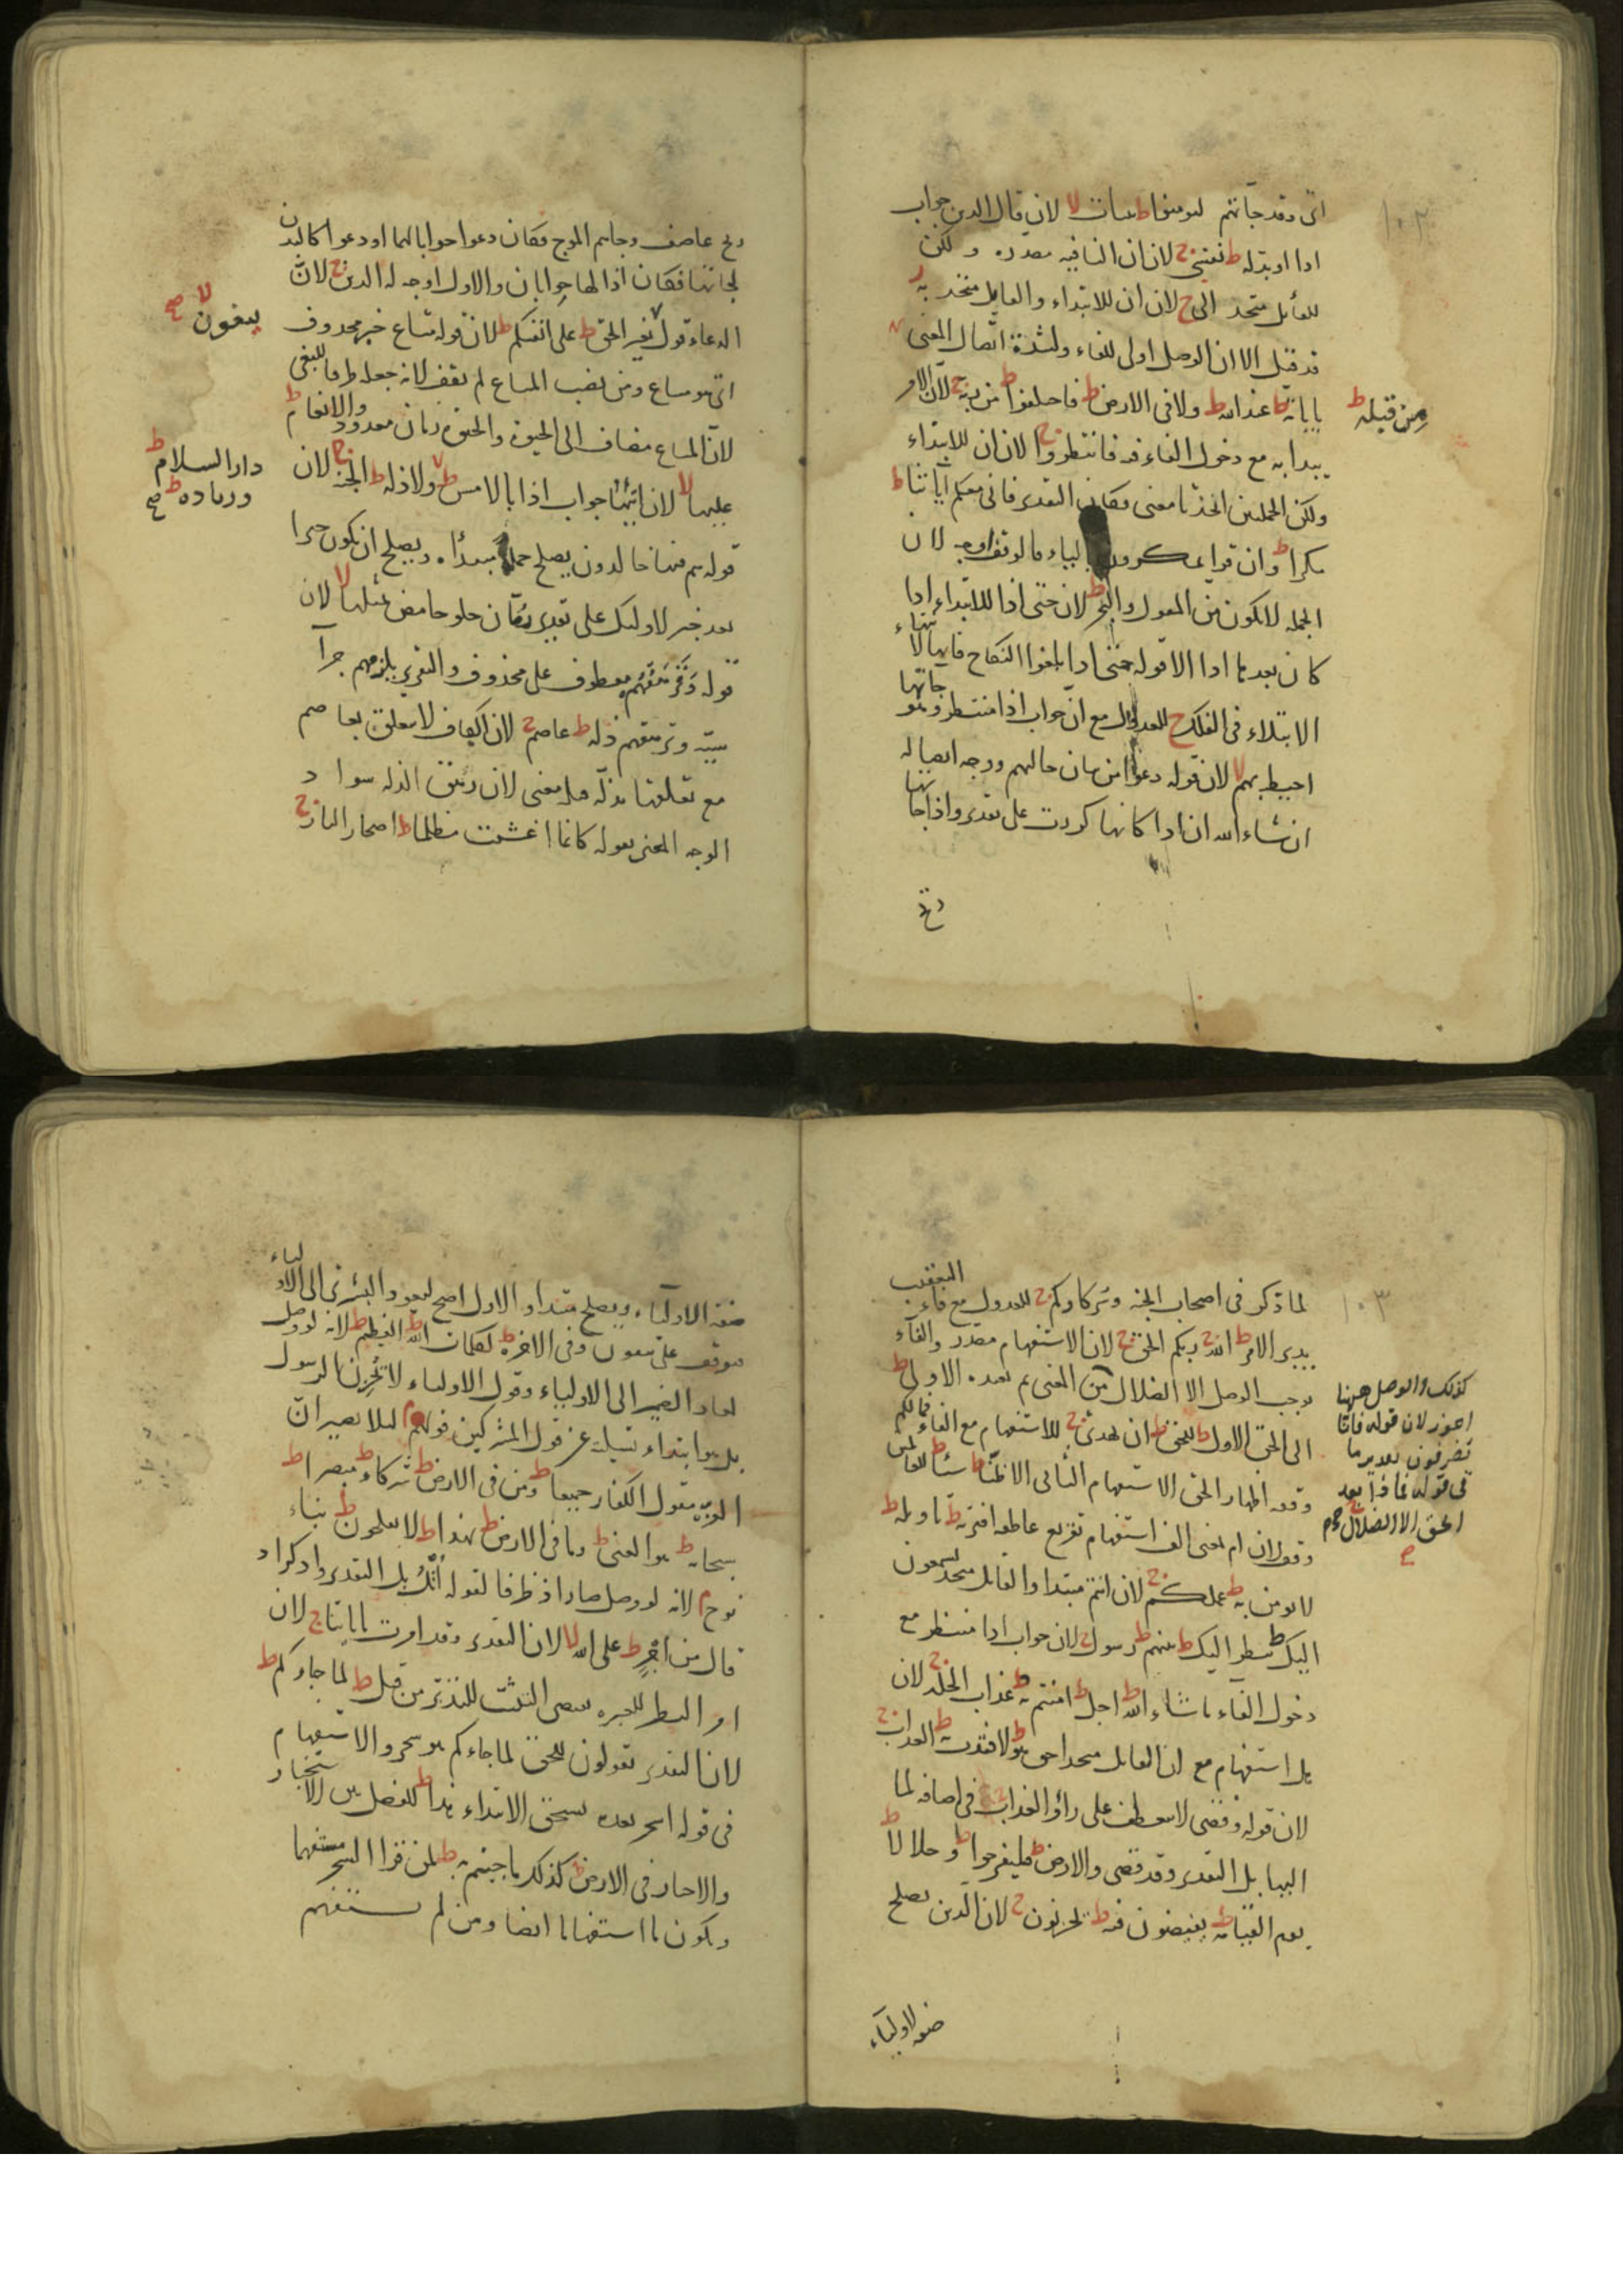 ١٠٢
اى وقد جاءتهم ليومنوا ط بينات لا لان قال الذين جواب
اذا او بدله ط نفسى ج لان ان النافيه مصدره ولكن
القائل متحد الى ج لان ان للابتداء والقائل متحد به
فد قيل الا ان الوصل اولى للفاء ولشدة اتصال المعنى
باياته ط عند الله ط ولا فى الارض ط فاختلفوا ط من ربه ج لان الامر
من قبله ط
يبدا به مع دخول الفاء فيه فانتظروا ج لان ان للابتداء
ولكن الجملتين اتحدتا معنى فكان التقدير فانى معكم اياتنا ط
مكرا ط وان قوا يمكرون بالياء فالوقف اوجه لان
الجملة لا يكون من المقول والبحر ط لان حتى اذا للابتداء اذا
كان بعدها اذا الا قوله حتى اذا بلغوا النكاح فانها لانتهاء
الابتلاء فى الفلك ج للعدول مع ان جواب اذا منتظر وهو جاءتها
احيط بهم لا لان قوله دعوا من بيان حالهم ووجه اتصاله
ان شاء الله ان اذا كانها كررت على تقدير واذا جاءتها
ريح
ريح عاصف وجاءهم الموج فكان دعوا جوابا لهما او دعوا كالبدل
لجاءتها فكان اذا لها جوابان والاول اوجه له الدين ج لان
الدعاء قول بغير الحق ط على انفسكم ط لان قوله متاع خبر محذوف
يبغون لا صح
اى هو متاع ومن نصب المتاع لم يقف لانه جعله ظرفا للبغى
لان المتاع مضاف الى الحيوة والحيوة زمان معدود والانعام ط
عليها لا لان اتيها جواب اذا بالامس ط ولا ذله ط الجنه ج لان
دار السلام ط
وزياده ط صح
قوله هم فيها خالدون يصلح جملة مبتدأه ويصلح ان يكون خبرا
بعد خبر لاولئك على تقدير رمان حلو حامض بمثلها لا لان
قوله وترهقهم معطوف على محذوف والتقدير يلزمهم جزا
سيئة وترهقهم ذله ط عاصم ج لان الكاف لا يتعلق بعاصم
مع تعلقها بذله معنى لان رهق الذله سواد
الوجه المعنى بقوله كانما اغشيت مظلما ط اصحاب النار ج
١٠٣
لما ذكر فى اصحاب الجنه وشركاوكم ج للعدول مع فاء التعقيب
يدبر الامر ط الله ج ربكم الحق ج لان الاستفهام مصدر والفاء
يوجب الوصل الا الضلال من المعنى بعده الاولى ط
كذلك والوصل ههنا
اجوز لان قوله فانى
تصرفون تقديره ما
فى قوله فماذا بعد
الحق الا الضلال ج
الى الحق الاول ط للحق ط ان يهدى ج للاستفهام مع الفاء فما لكم
وقف اظهار الحق الاستفهام الثانى الا ظنا ط شيئا ط للعالمين
وقف لان ام بمعنى الف استفهام تقريع عاطفه افتريه ط تاويله ط
لا يومن به ط عملكم ج لان انتم مبتدا والقائل متحد يستمعون
اليك ط ينظر اليك ط بينهم ط رسول ج لان جواب اذا منتظر مع
دخول الفاء ما شاء الله ط اجل ط امنتم به ط عذاب الخلد ج لان
هل استفهام مع ان القائل متحد احق هو ط لافتدت به ط العذاب ج
لان قوله وقضى لا يعطف على راوا العذاب فى اضافه لما
اليها بل التقدير وقد قضى والارض ط فليفرحوا ط وحلالا ط
يوم القيامه ط تفيضون فيه ط يحزنون ج لان الذين يصلح
صفه الاولياء
صفة الاولياء ويصلح مبتدا والاول اصح لعود البشرى الى الاولياء
فيوقف على يتقون وفى الاخره ط لكلمات الله ط العظيم ط لانه لو وصل
لعاد الضمير الى الاولياء وقول الاولياء لا يحزن الرسول
بل هو ابتداء تسلية عن قول المشركين قولهم م لئلا يصير ان
العزة مقول الكفار جميعا ط ومن فى الارض ط شركاء ط مبصرا ط
سبحانه ط هو الغنى ط وما فى الارض ط بهذا ط لا يعلمون ط نباء
نوح م لانه لو وصل صار اذ ظرفا لقوله اتل بل التقدير واذكر اذ
قال من اجر ط على الله لا لان التقدير وقد امرت باياتنا ج لان
لما جاءكم ط
لان التقدير تقولون للحق لما جاءكم هو سحر والاستفهام
فى قوله اسحر بعده يستحق الابتداء هذا ط للفصل بين الاستخبار
والاخبار فى الارض ط كذلك ما جئتم به ط لمن قرا السحر مستفهما
ويكون ما استفهاما ايضا ومن لم يستفهم